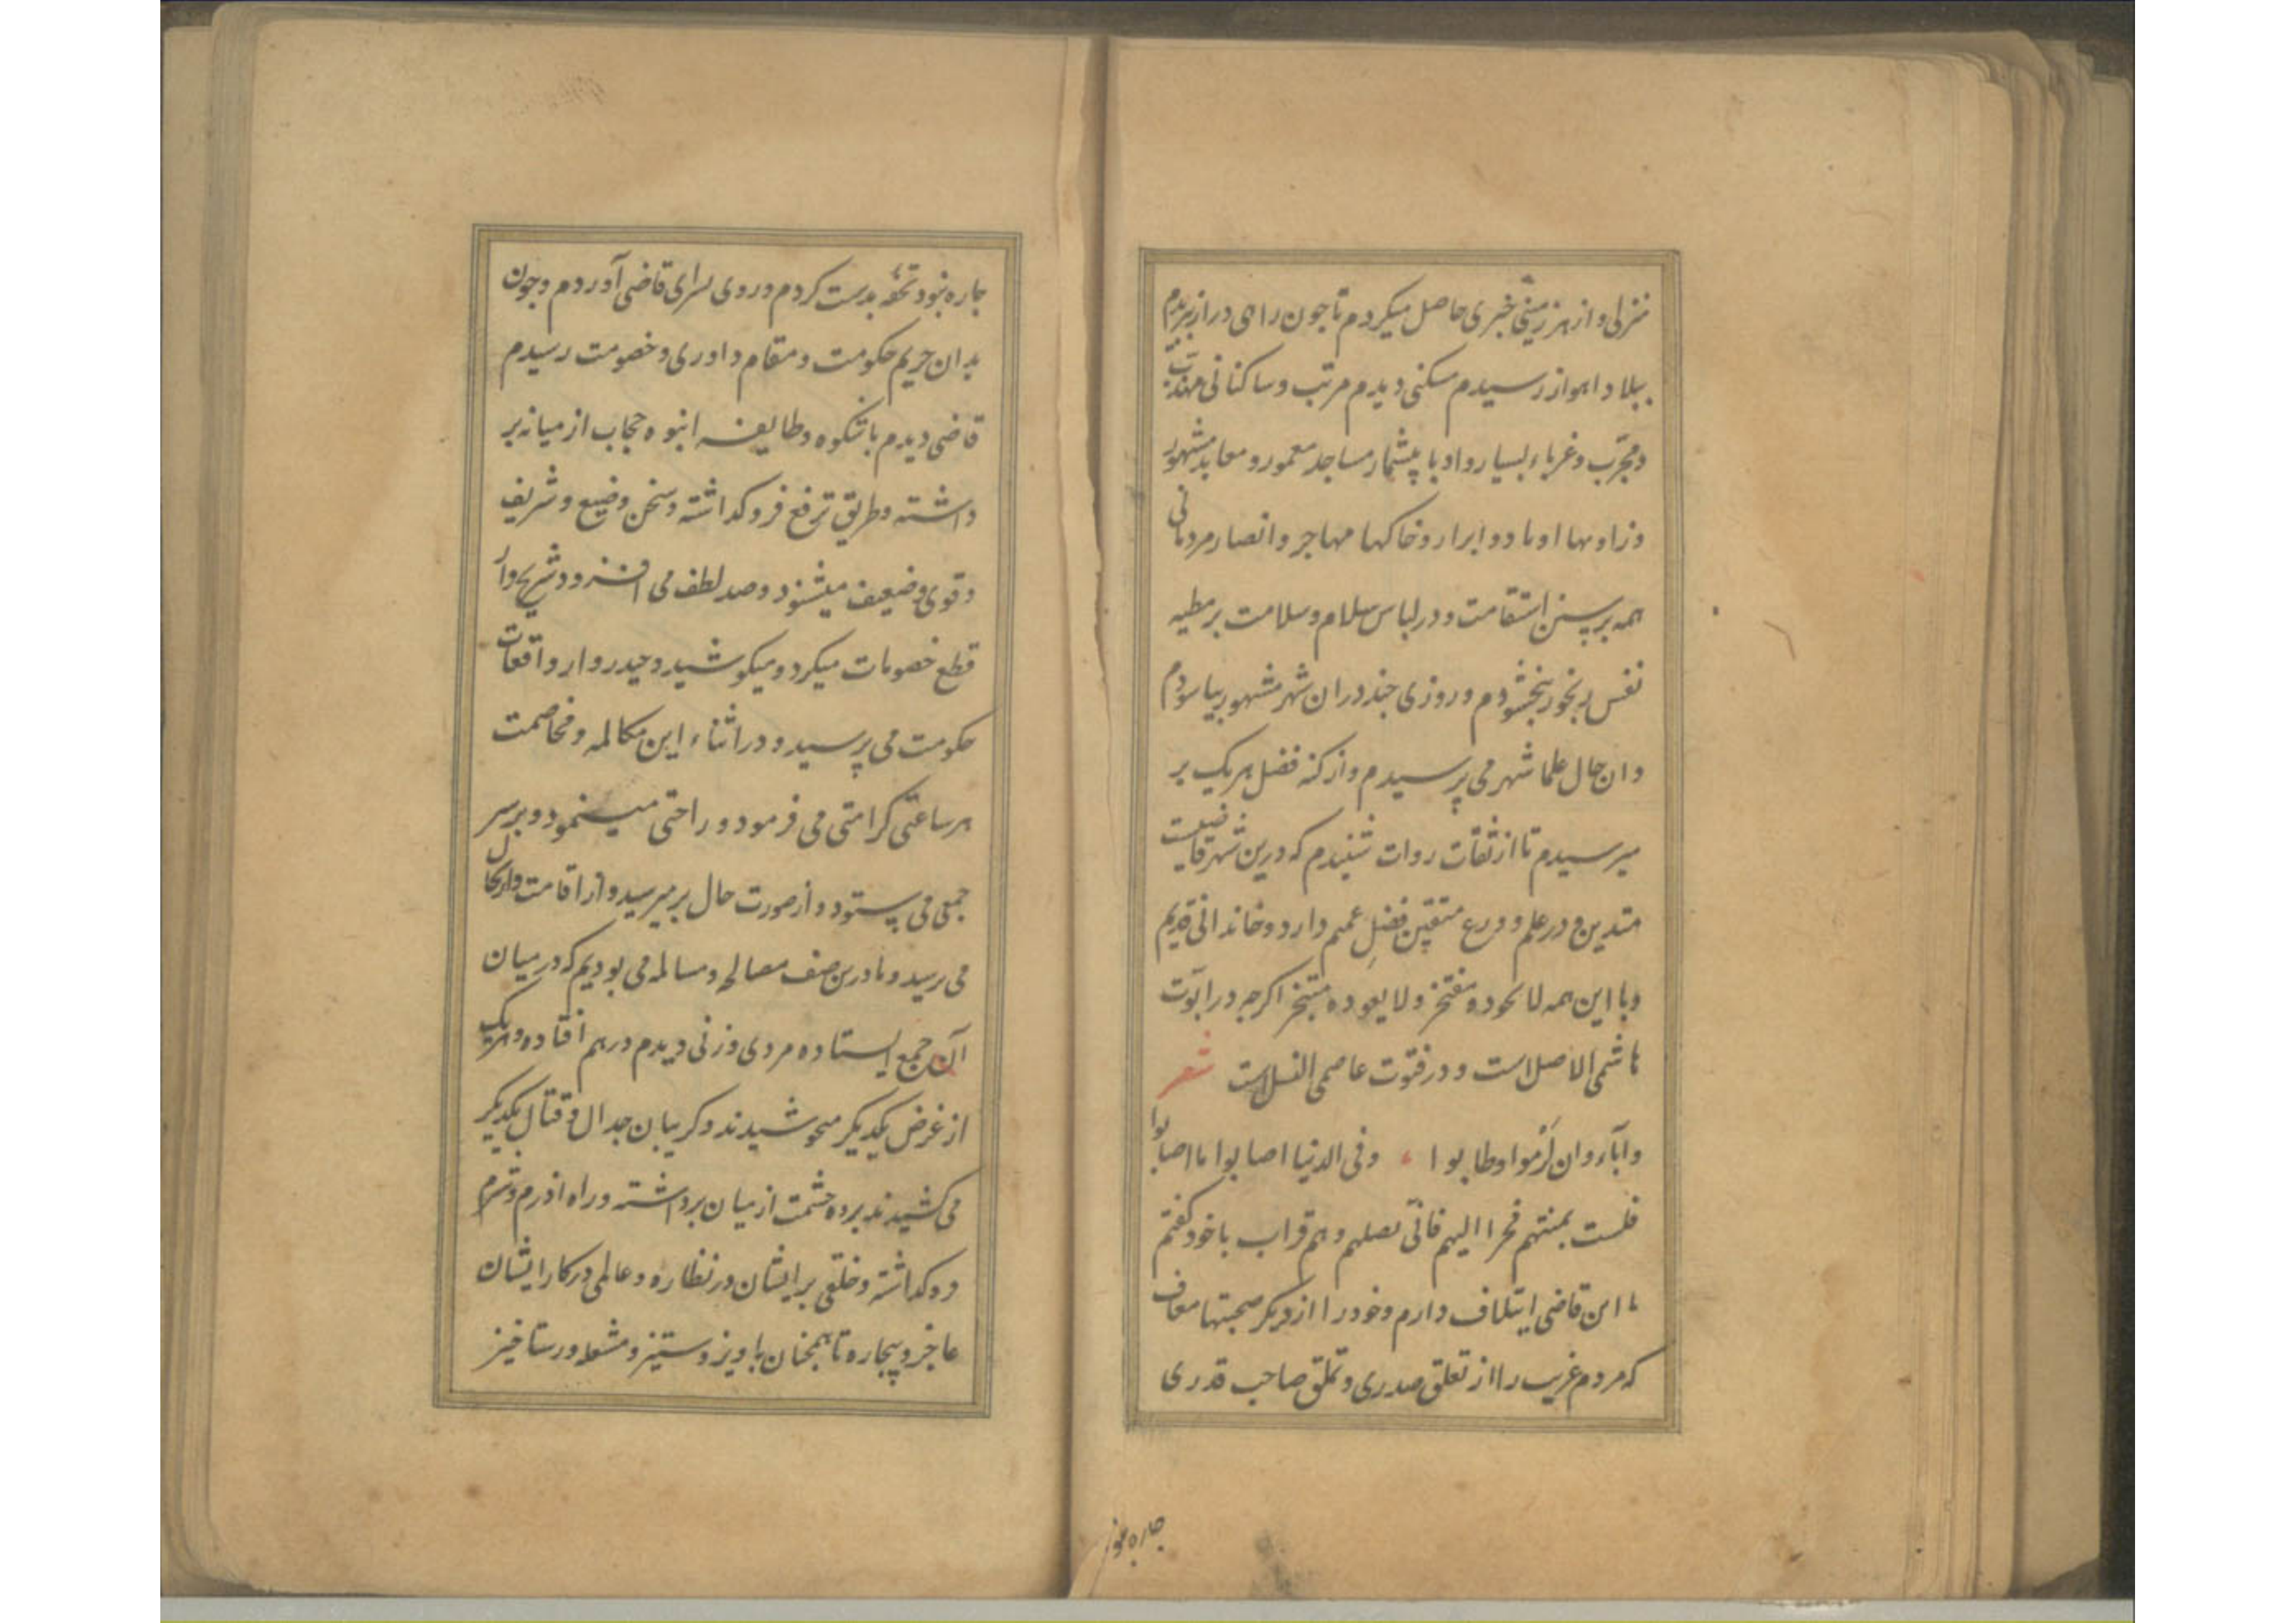 منزلی و از هر زمینی خبری حاصل میکردم تا چون راهی دراز ببریدم
ببلاد اهواز رسیدم مسکنی دیدم مرتب و ساکنانی مهذب
و مجرب و غرباء بسیار و ادبا بیشمار مساجد معمور و معابد مشهور
و زاویها اوتاد و ابرار و خاکها مهاجر و انصار مردمانی
همه بر سنن استقامت و در لباس سلام و سلامت بر مطیه
نفس رنجور ببخشودم و روزی چند در ان شهر مشهور بیاسودم
و ان حال علما شهر می پرسیدم و از کنه فضل هر یک بر
میرسیدم تا از ثقات روات شنیدم که درین شهر قاضیست
متدین و در علم و ورع متقین فضل عمیم دارد و خاندانی قدیم
و با این همه لا بحوده مفتخر و لا یعوده متبخر اکرچه در ابوت
هاشمی الاصل است و در فتوت عاصمی النسل است شعر
و آباء وان کرموا وطابوا ، وفی الدنیا اصابوا ما اصابوا
فلست بمنتهم فخرا الیهم فانی نصلهم وهم قراب با خود گفتم
با این قاضی ایتلاف دارم و خود را از دیکر صحبتها معاف
که مردم غریب را از تعلق صدری و تملق صاحب قدری
چاره نبود
چاره نبود تحفه بدست کردم و روی بسرای قاضی آوردم و چون
بدان حریم حکومت و مقام داوری و خصومت رسیدم
قاضی دیدم باشکوه و طایفه انبوه حجاب از میانه بر
داشته و طریق ترفع فرو کداشته و سخن وضیع و شریف
و قوی و ضعیف میشنود و صد لطف می افزود و شریح وار
قطع خصومات میکرد و میکوشید و حیدر وار واقعات
حکومت می پرسید و در اثناء این مکالمه و مخاصمت
هر ساعتی کرامتی می فرمود و راحتی مینمود و بر سر
جمعی می پستود و از صورت حال بر میرسید و از اقامت و ارتحال
می رسید و ما درین صف مصالحه و مسالمه می بودیم که در میان
آن جمع ایستاده مردی و زنی دیدم در هم افتاده و هر یک
از غرض یکدیکر میجوشیدند و کریبان جدال و قتال یکدیکر
می کشیدند برده حشمت از میان برداشته و راه آزرم و شرم
فرو کداشته و خلقی بر ایشان در نظاره و عالمی در کار ایشان
عاجز و بیچاره تا همچنان با ویز و ستیز و مشعله و رستاخیز